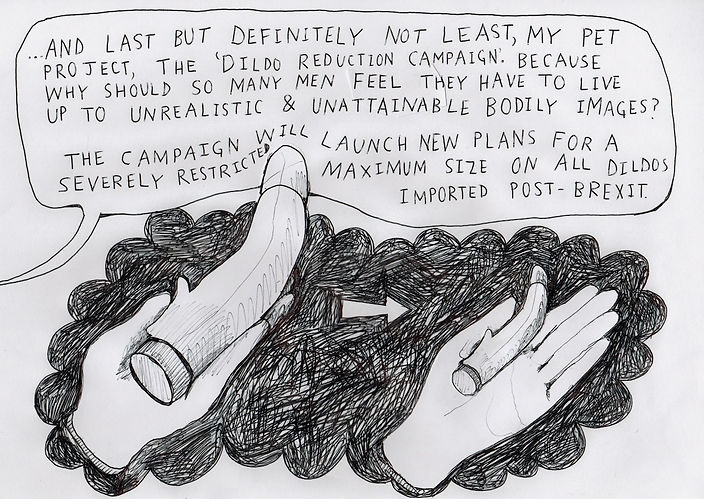 ...AND LAST BUT DEFINITELY NOT LEAST, MY PET
PROJECT, THE 'DILDO REDUCTION CAMPAIGN'. BECAUSE
WHY SHOULD SO MANY MEN FEEL THEY HAVE TO LIVE
UP TO UNREALISTIC & UNATTAINABLE BODILY IMAGES?
THE CAMPAIGN WILL LAUNCH NEW PLANS FOR A
SEVERELY RESTRICTED MAXIMUM SIZE ON ALL DILDOS
IMPORTED POST-BREXIT.